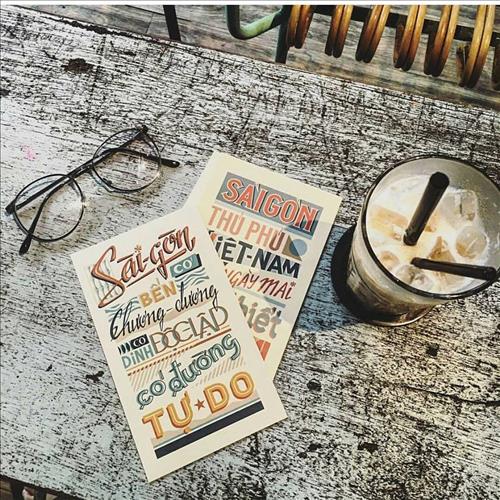 Sài-gòn
CÓ
BẾN
Chương-dương
CÓ
DINH ĐỘC LẬP
có đường
TỰ DO
SAIGON
THỦ PHỦ
VIỆT-NAM
NGÀY MAI